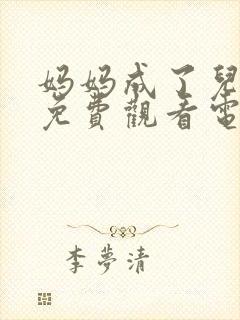 妈妈成了兒
免費觀看電
李夢清